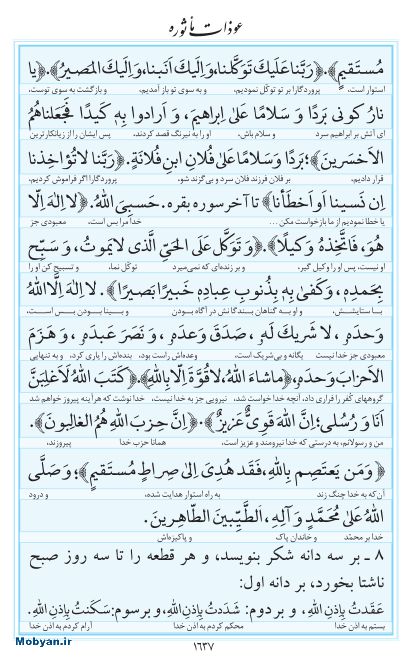 عوذات مأثوره
مُستَقيمٍ﴾.﴿رَبَّنا عَلَيكَ تَوَكَّلنا، وَاِلَيكَ اَنَبنا، وَاِلَيكَ المَصيرُ﴾.﴿يا
استوار است، پروردگارا بر تو توکل نمودیم، و به سوی تو باز آمدیم، و بازگشت به سوی توست، ای
نارُ كونى بَردًا وَ سَلامًا عَلىٰ اِبراهيمَ، وَ اَرادوا بِهٖ كَيدًا فَجَعَلناهُمُ
ای آتش بر ابراهیم سرد و سلام باش، او را به نیرنگ قصد کردند، پس ایشان را از زیانکارترین
الاَخسَرينَ﴾؛ بَردًا وَسَلامًا عَلىٰ فُلانِ ابنِ فُلانَةَ. ﴿رَبَّنا لا تُؤاخِذنا
قرار دادیم، بر فلان فرزند فلان سرد و بی‌گزند شو، پروردگارا اگر فراموش کردیم،
اِن نَسينا اَو اَخطَأنا﴾ تا آخر سوره بقره. حَسبِيَ اللهُ. ﴿لا اِلٰهَ اِلّا
یا خطا نمودیم از ما بازخواست مکن ... خدا مرا بس است، معبودی جز
هُوَ، فَاتَّخِذهُ وَكيلًا﴾. ﴿وَ تَوَكَّل عَلَى الحَيِّ الَّذى لا يَموتُ، وَ سَبِّح
او نیست، پس او را وکیل گیر، و بر زنده‌ای که نمی‌میرد توکل نما، و تسبیح کن او را
بِحَمدِهٖ، وَكَفىٰ بِهٖ بِذُنوبِ عِبادِهٖ خَبيرًا بَصيرًا﴾. لا اِلٰهَ اِلَّا اللهُ
با ستایشش، و او به گناهان بندگانش در آگاه بودن و بینا بودن بس است،
وَحدَهٗ، لا شَريكَ لَهٗ، صَدَقَ وَعدَهٗ، وَ نَصَرَ عَبدَهٗ، وَ هَزَمَ
معبودی جز خدا نیست یگانه و بی‌شریک است، وعده‌اش راست بود، بنده‌اش را یاری کرد، و به تنهایی
الاَحزابَ وَحدَهٗ، ﴿ماشاءَ اللهُ، لا قُوَّةَ اِلّا بِاللهِ﴾. ﴿كَتَبَ اللهُ لَاَغلِبَنَّ
گروههای کفر را فراری داد، آنچه خدا خواست شد، نیرویی جز به خدا نیست، خدا نوشت که هر آینه پیروز خواهم شد
اَنَا وَ رُسُلى؛ اِنَّ اللهَ قَوِىٌّ عَزيزٌ﴾. ﴿اِنَّ حِزبَ اللهِ هُمُ الغالِبونَ﴾.
من و رسولانم، به درستی که خدا نیرومند و عزیز است، همانا حزب خدا پیروزند،
﴿وَ مَن يَعتَصِم بِاللهِ، فَقَد هُدِىَ اِلىٰ صِراطٍ مُستَقيمٍ﴾؛ وَ صَلَّى
آن‌که به خدا چنگ زند به راه استوار هدایت شده، و درود
اللهُ عَلىٰ مُحَمَّدٍ وَ آلِهِ، الطَّيِّبينَ الطّاهِرينَ.
خدا بر محمّد و خاندان پاک و پاکیزه‌اش
۸ ـ بر سه دانه شکر بنویسد، و هر قطعه را تا سه روز صبح
ناشتا بخورد، بر دانه اول:
عَقَدتُ بِاِذنِ اللهِ، و بر دوم: شَدَدتُ بِاِذنِ اللهِ، و بر سوم: سَكَنتُ بِاِذنِ اللهِ.
بستم به اذن خدا محکم کردم به اذن خدا آرام کردم به اذن خدا
Mobyan.ir
۱۶۳۷